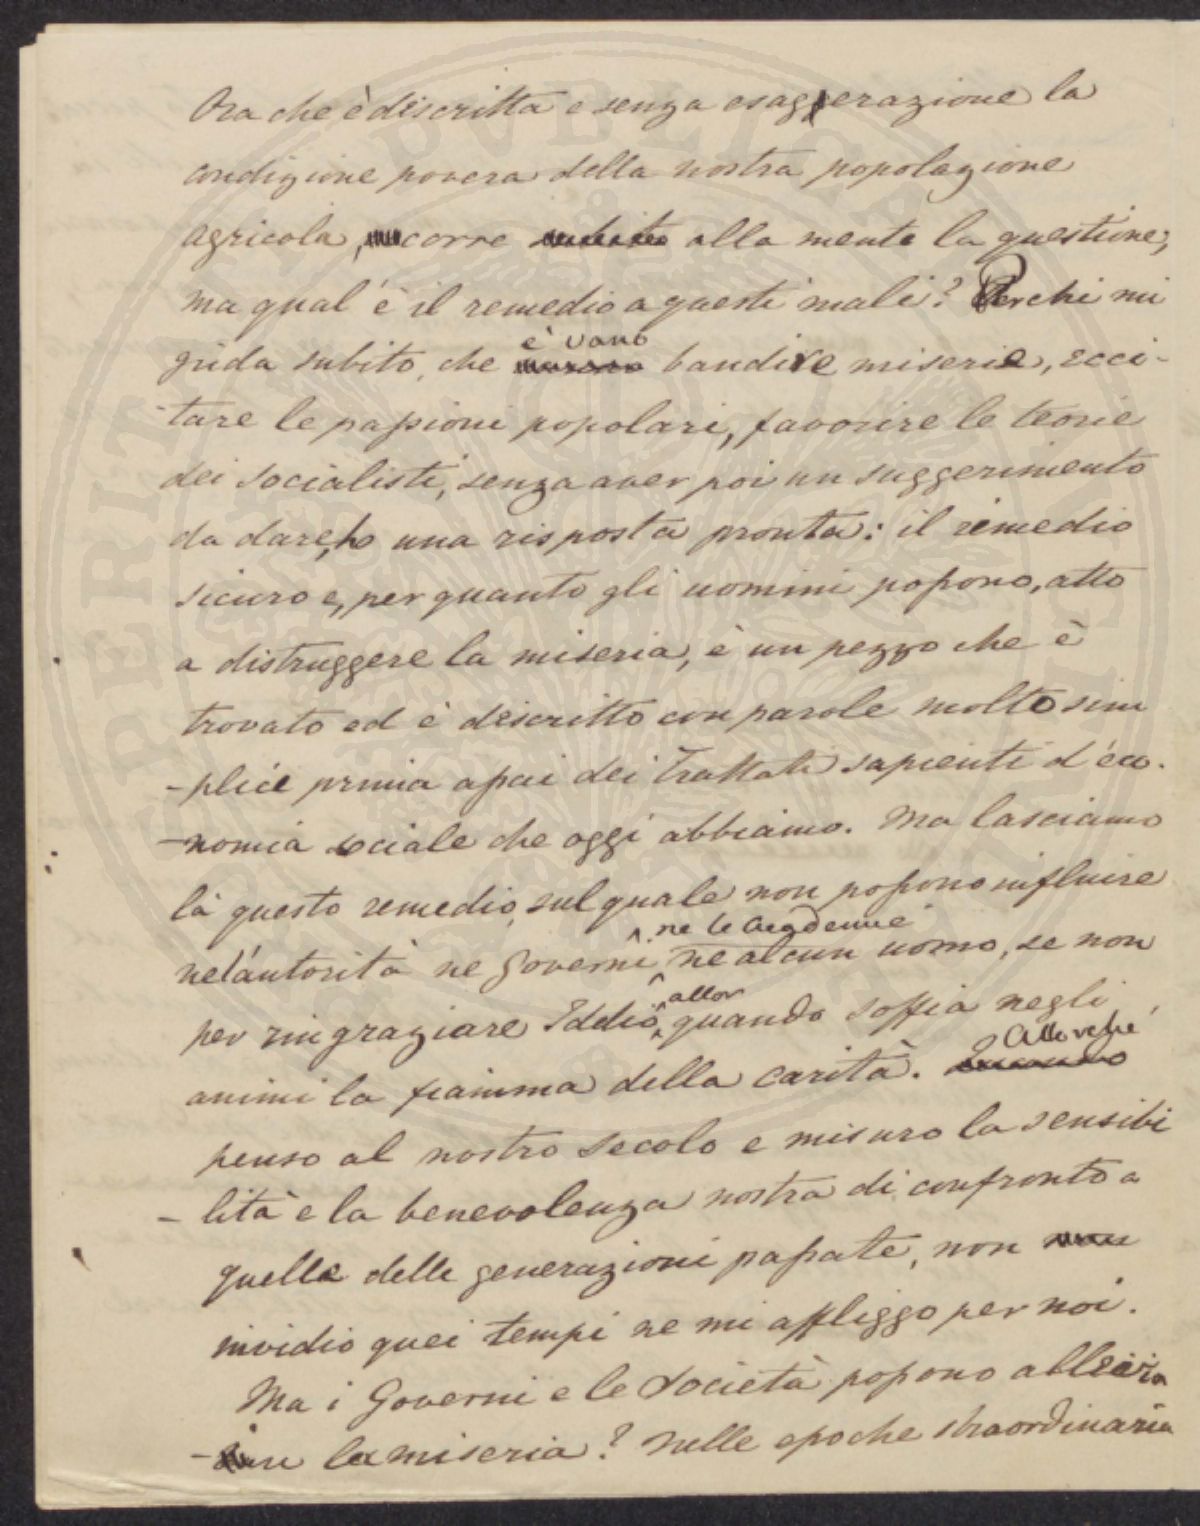 Ora che è descritta e senza esagerazione la
condizione povera della nostra popolazione
agricola, corre alla mente la questione;
ma qual'è il remedio a questi mali? Per chi mi
grida subito, che è vano bandire miserie, ecci-
tare le passioni popolari, favorire le teorie
dei socialisti, senza aver poi un suggerimento
da dare, ho una risposta pronta: il remedio
sicuro e, per quanto gli uomini possono, atto
a distruggere la miseria, è un pezzo che è
trovato ed è descritto con parole molto sem
-plici prima assai dei Trattati sapienti d'eco-
-nomia sociale che oggi abbiamo. Ma lasciamo
là questo remedio, sul quale non possono influire
ne l'autorità ne Governi, ne le Accademie ne alcun uomo, se non
per ringraziare Iddio, allor quando soffia negli
animi la fiamma della carità. Allorché
penso al nostro secolo e misuro la sensibi
-lità e la benevolenza nostra di confronto a
quelle delle generazioni passate, non
invidio quei tempi ne mi affliggo per noi.
Ma i Governi e le Società possono
la miseria? Nelle epoche straordinarie